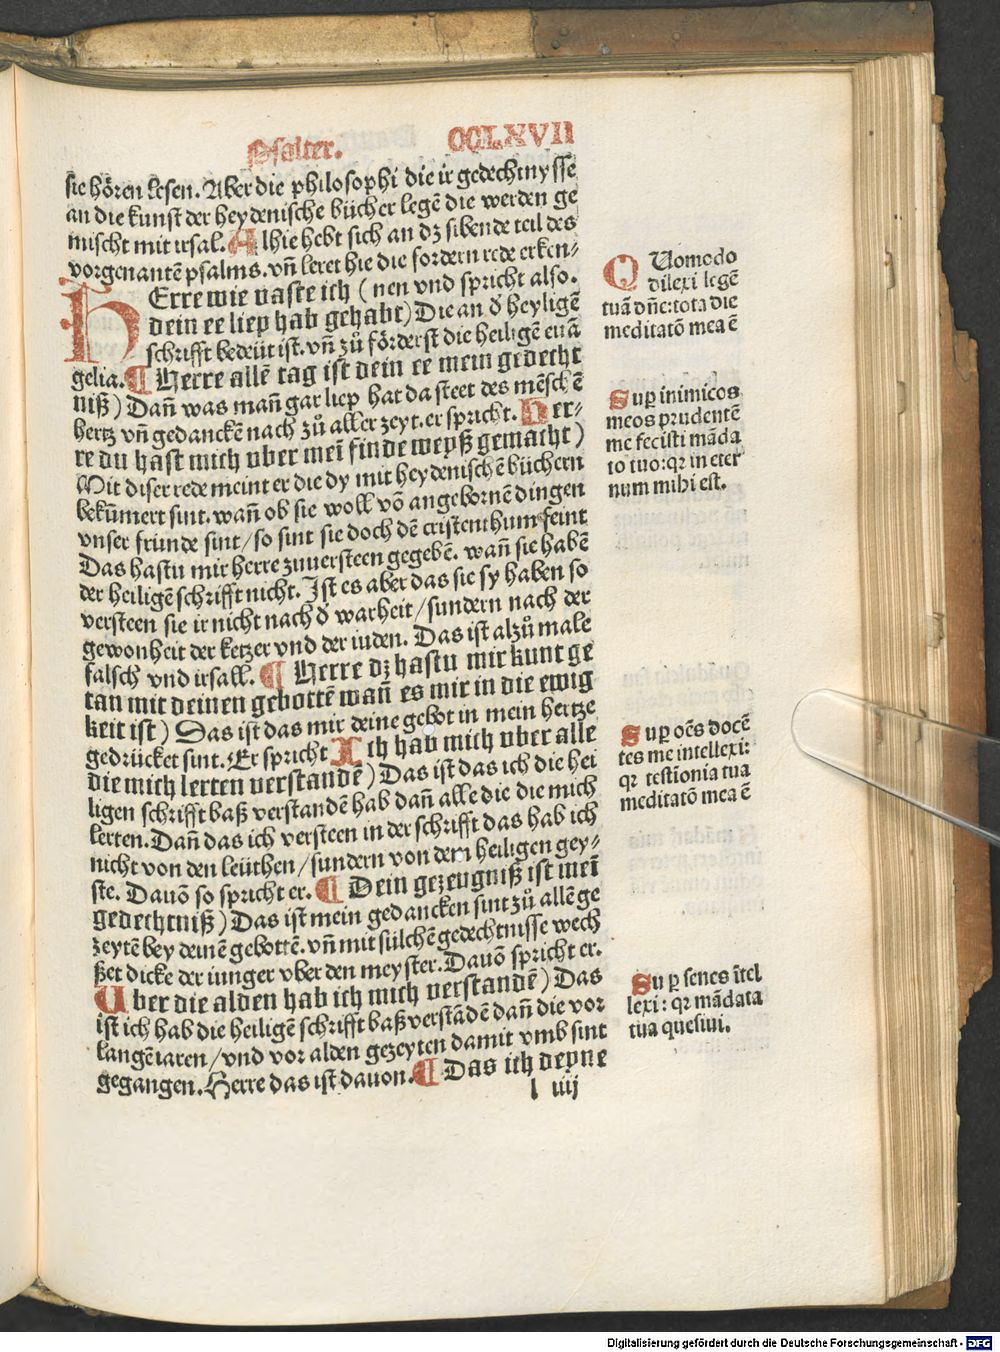 Psalter.
CCLXVII
sie hören lesen. Aber die philosophi die ir gedechtnysse
an die kunst der heydenische bücher legē die werden ge
mischt mit irsal. Alhie hebt sich an dz sibende teil des
vorgenantē psalms. vñ leret hie die fordern rede erken-
HErre wie vaste ich (nen vnd spricht also.
dein ee liep hab gehabt) Die an ð heyligē
schrifft bedeüt ist. vñ zů förderst die heiligē euā
gelia. ¶ Herre allē tag ist dein ee mein gedecht
niß) Dañ was mañ gar liep hat da steet des mēschē
hertz vñ gedanckē nach zů aller zeyt. er spricht. Her-
re du hast mich vber mei finde weyß gemacht)
Mit diser rede meint er die dy mit heydenischē büchern
bekūmert sint. wañ ob sie woll vō angebornē dingen
vnser fründe sint/so sint sie doch dē cristenthum feint
Das hastu mir herre zuuersteen gegebē. wañ sie habē
der heiligē schrifft nicht. Ist es aber das sie sy haben so
versteen sie ir nicht nach ð warheit/sundern nach der
gewonheit der ketzer vnd der iuden. Das ist alzů male
falsch vnd irsall. ¶ Herre dz hastu mir kunt ge
tan mit deinen gebottē wañ es mir in die ewig
keit ist) Das ist das mir deine gebot in mein hertze
gedrücket sint. Er spricht Ich hab mich vber alle
die mich lerten verstandē) Das ist das ich die hei
ligen schrifft baß verstandē hab dañ alle die die mich
lerten. Dañ das ich versteen in der schrifft das hab ich
nicht von den leüthen/sundern von dem heiligen gey-
ste. Dauō so spricht er. ¶ Dein gezeugniß ist mei
gedechtniß) Das ist mein gedancken sint zů allē ge
zeytē bey deinē gebottē. vñ mit sülchē gedechtnisse wech
ßet dicke der iunger vber den meyster. Dauō spricht er.
Uber die alden hab ich mich verstandē) Das
ist ich hab die heiligē schrifft baß verstādē dañ die vor
langē iaren/vnd vor alden gezeyten damit vmb sint
gegangen. Herre das ist dauon. ¶ Das ich deyne
l iiij
QUomodo
dilexi legē
tuā dñe: tota die
meditatō mea ē
Suꝑ inimicos
meos prudentē
me fecisti māda
to tuo: qꝛ in eter
num mihi est.
Suꝑ oēs docē
tes me intellexi:
qꝛ testionia tua
meditatō mea ē
Suꝑ senes ītel
lexi: qꝛ mādata
tua quesiui.
Digitalisierung gefördert durch die Deutsche Forschungsgemeinschaft - DFG